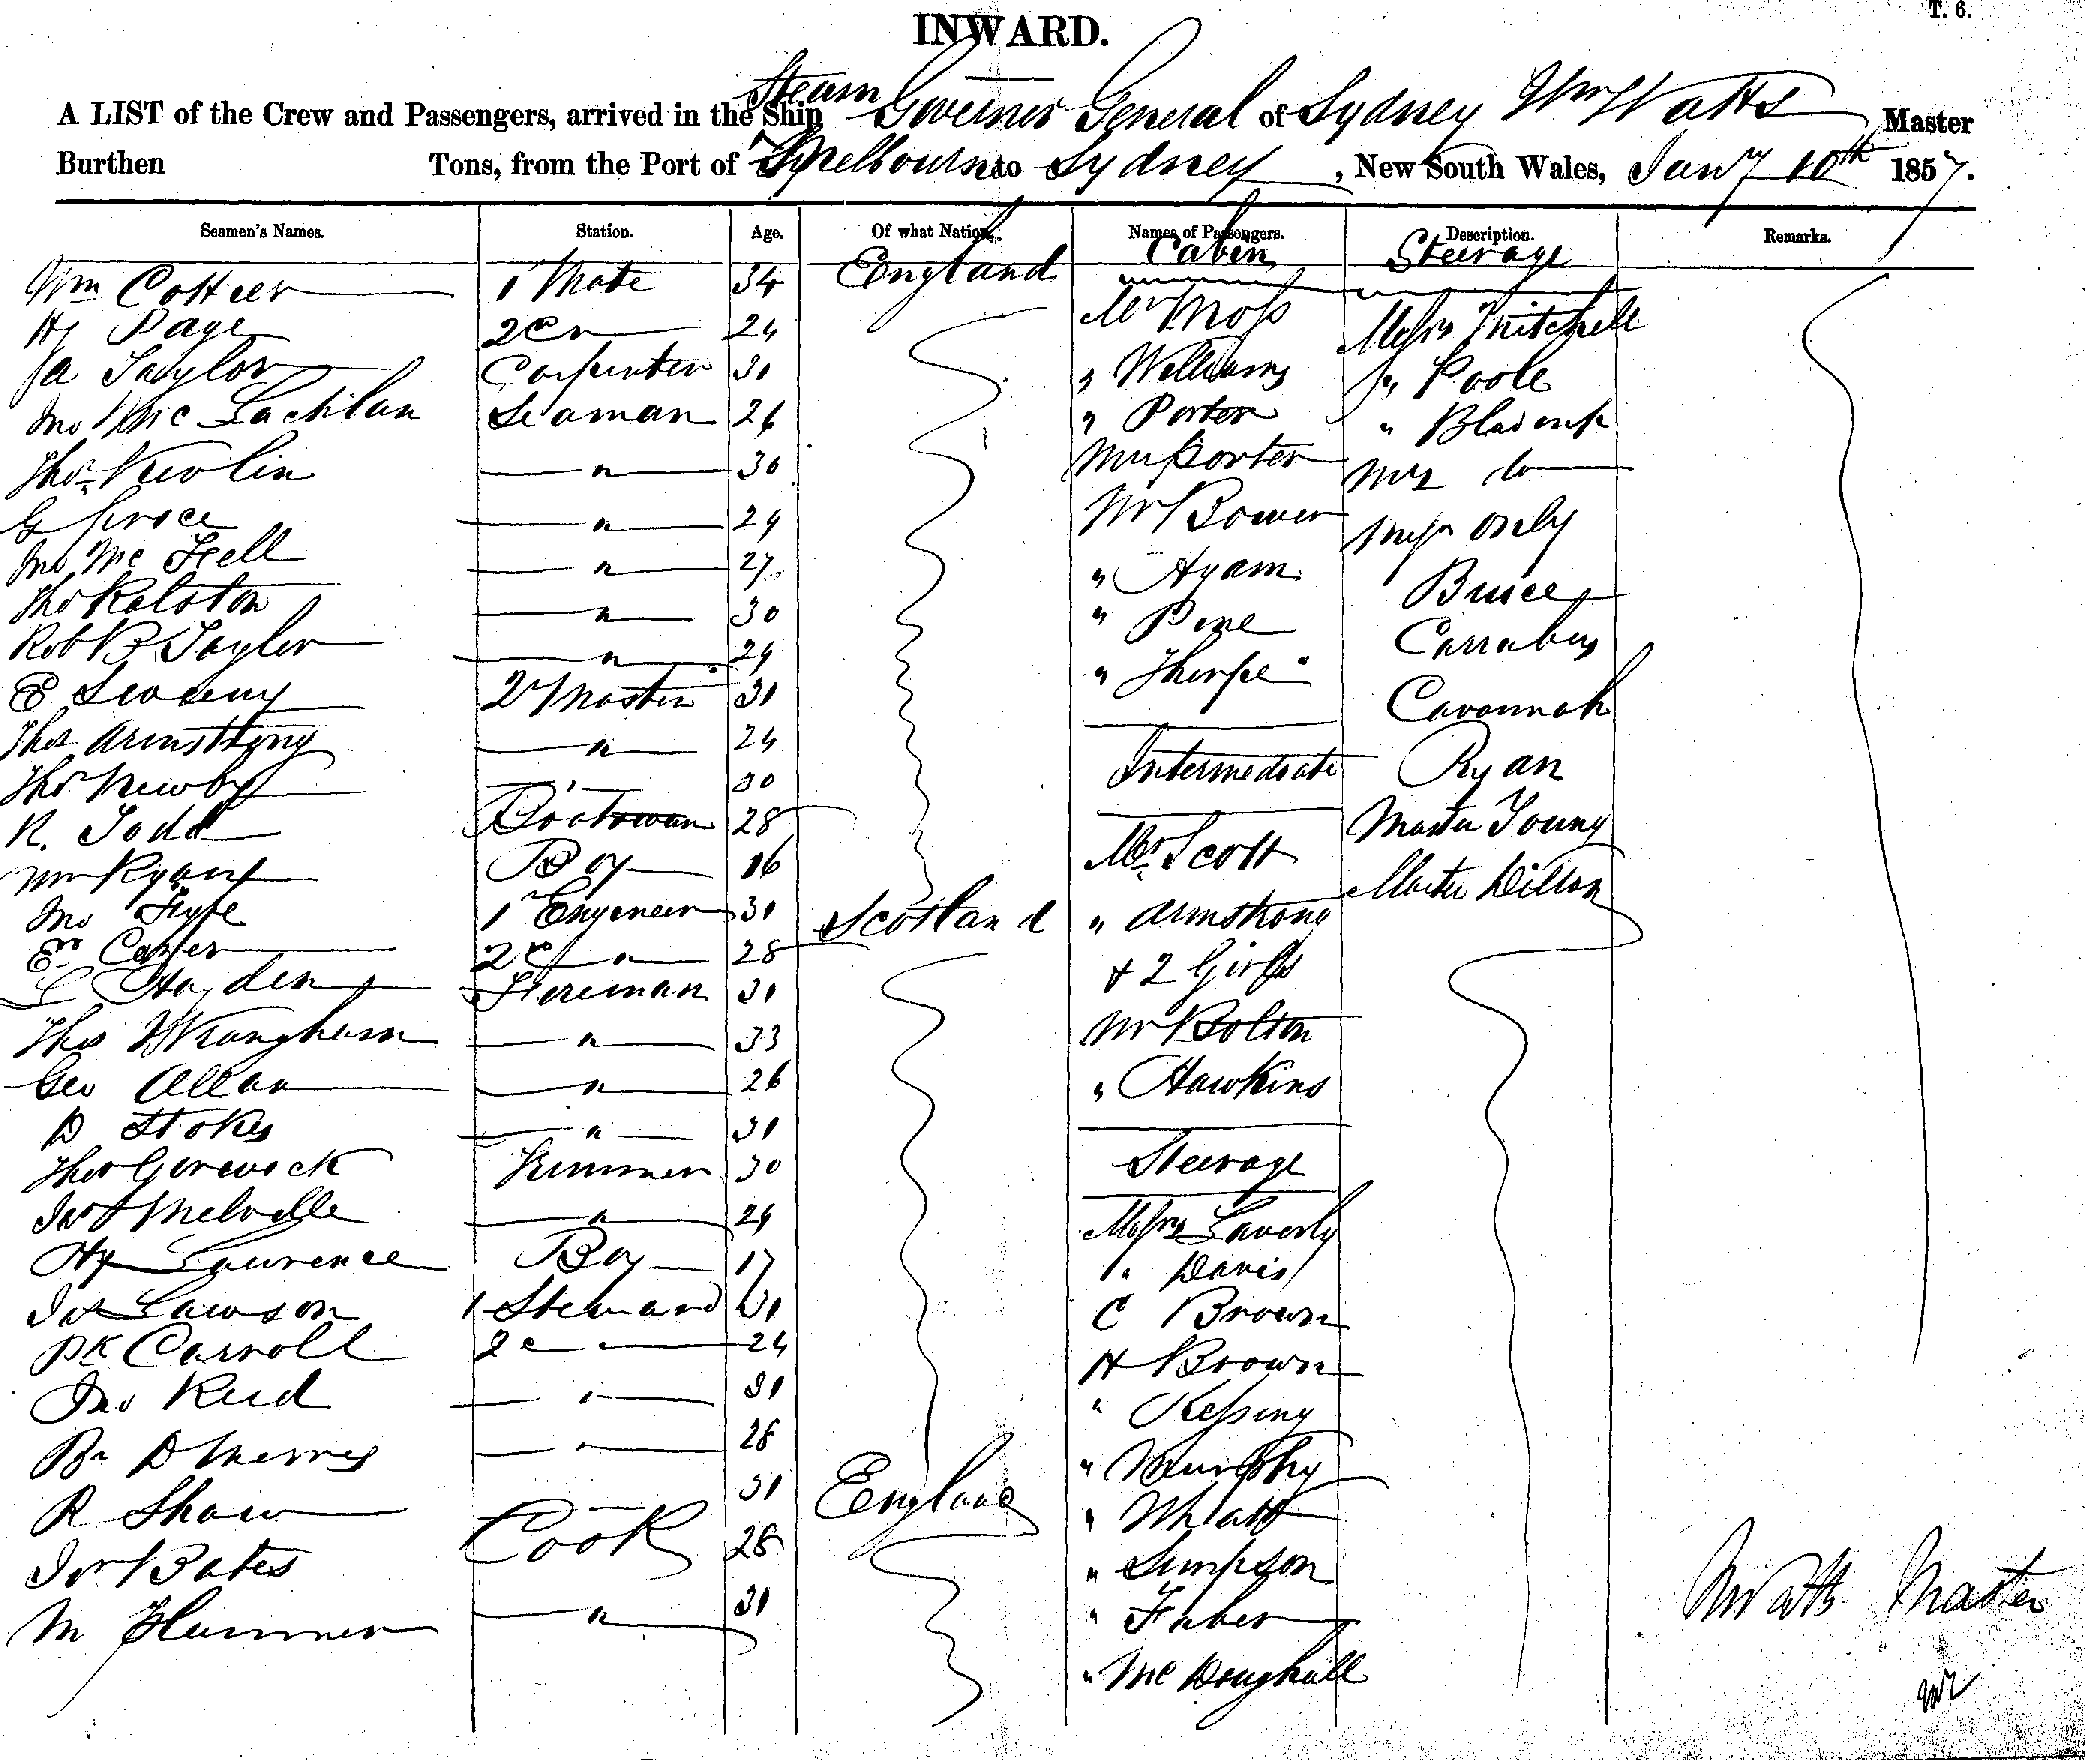 T. 6.
INWARD.
Steam
A LIST of the Crew and Passengers, arrived in the Ship Governor General of Sydney Wm Watts Master
Burthen Tons, from the Port of Melbourne to Sydney, New South Wales, Jany 10th 1857.
Seamen's Names. Station. Age. Of what Nation. Names of Passengers. Description. Remarks.
Cabin Steerage
Wm Cottier 1 Mate 34 England Mr Moss Messrs Mitchell
Hy Page 2 " 24 " Williams " Poole
Ja Taylor Carpenter 31 " Porter "
Jno McLachlan Seaman 26 Mrs Porter Mrs do
Thos " 30 Mr Bower only
G " 29 " Hyam Bruce
Jno Mc Fell " 27 " Carrabus
Thos Ralston " 30 " Thorpe Cavannah
Robt Taylor " 29 Intermediate Ryan
E Sweeny 31 Mr Scott Master Young
Thos Armstrong " 24 " Armstrong Master Dillon
Thos Newby " 30 & 2 Girls
R. Todd Boatswain 28 Mr Bolton
Wm Boy 16 " Hawkins
Jno Fyfe 1 Engineer 31 Scotland Steerage
Carter 2 " 28 Messrs Laverty
Hayden Fireman 31 " Davis
Thos Wrangham " 33 C Brown
Geo Allan " 26 H Brown
D Stokes " 31 " Kessing
Thos Trimmer 30 " Murphy
Jas Melville " 29 " Whatt
Hy Lawrence Boy 17 " Simpson
Jos Lawson 1 Steward 31 " Faber
Pk Carroll 2 " 24 " McDoughall
Jno Reid " 31
" 28
R Shaw " 31 England
Bates Cook 28
M " 31
W Watts Master